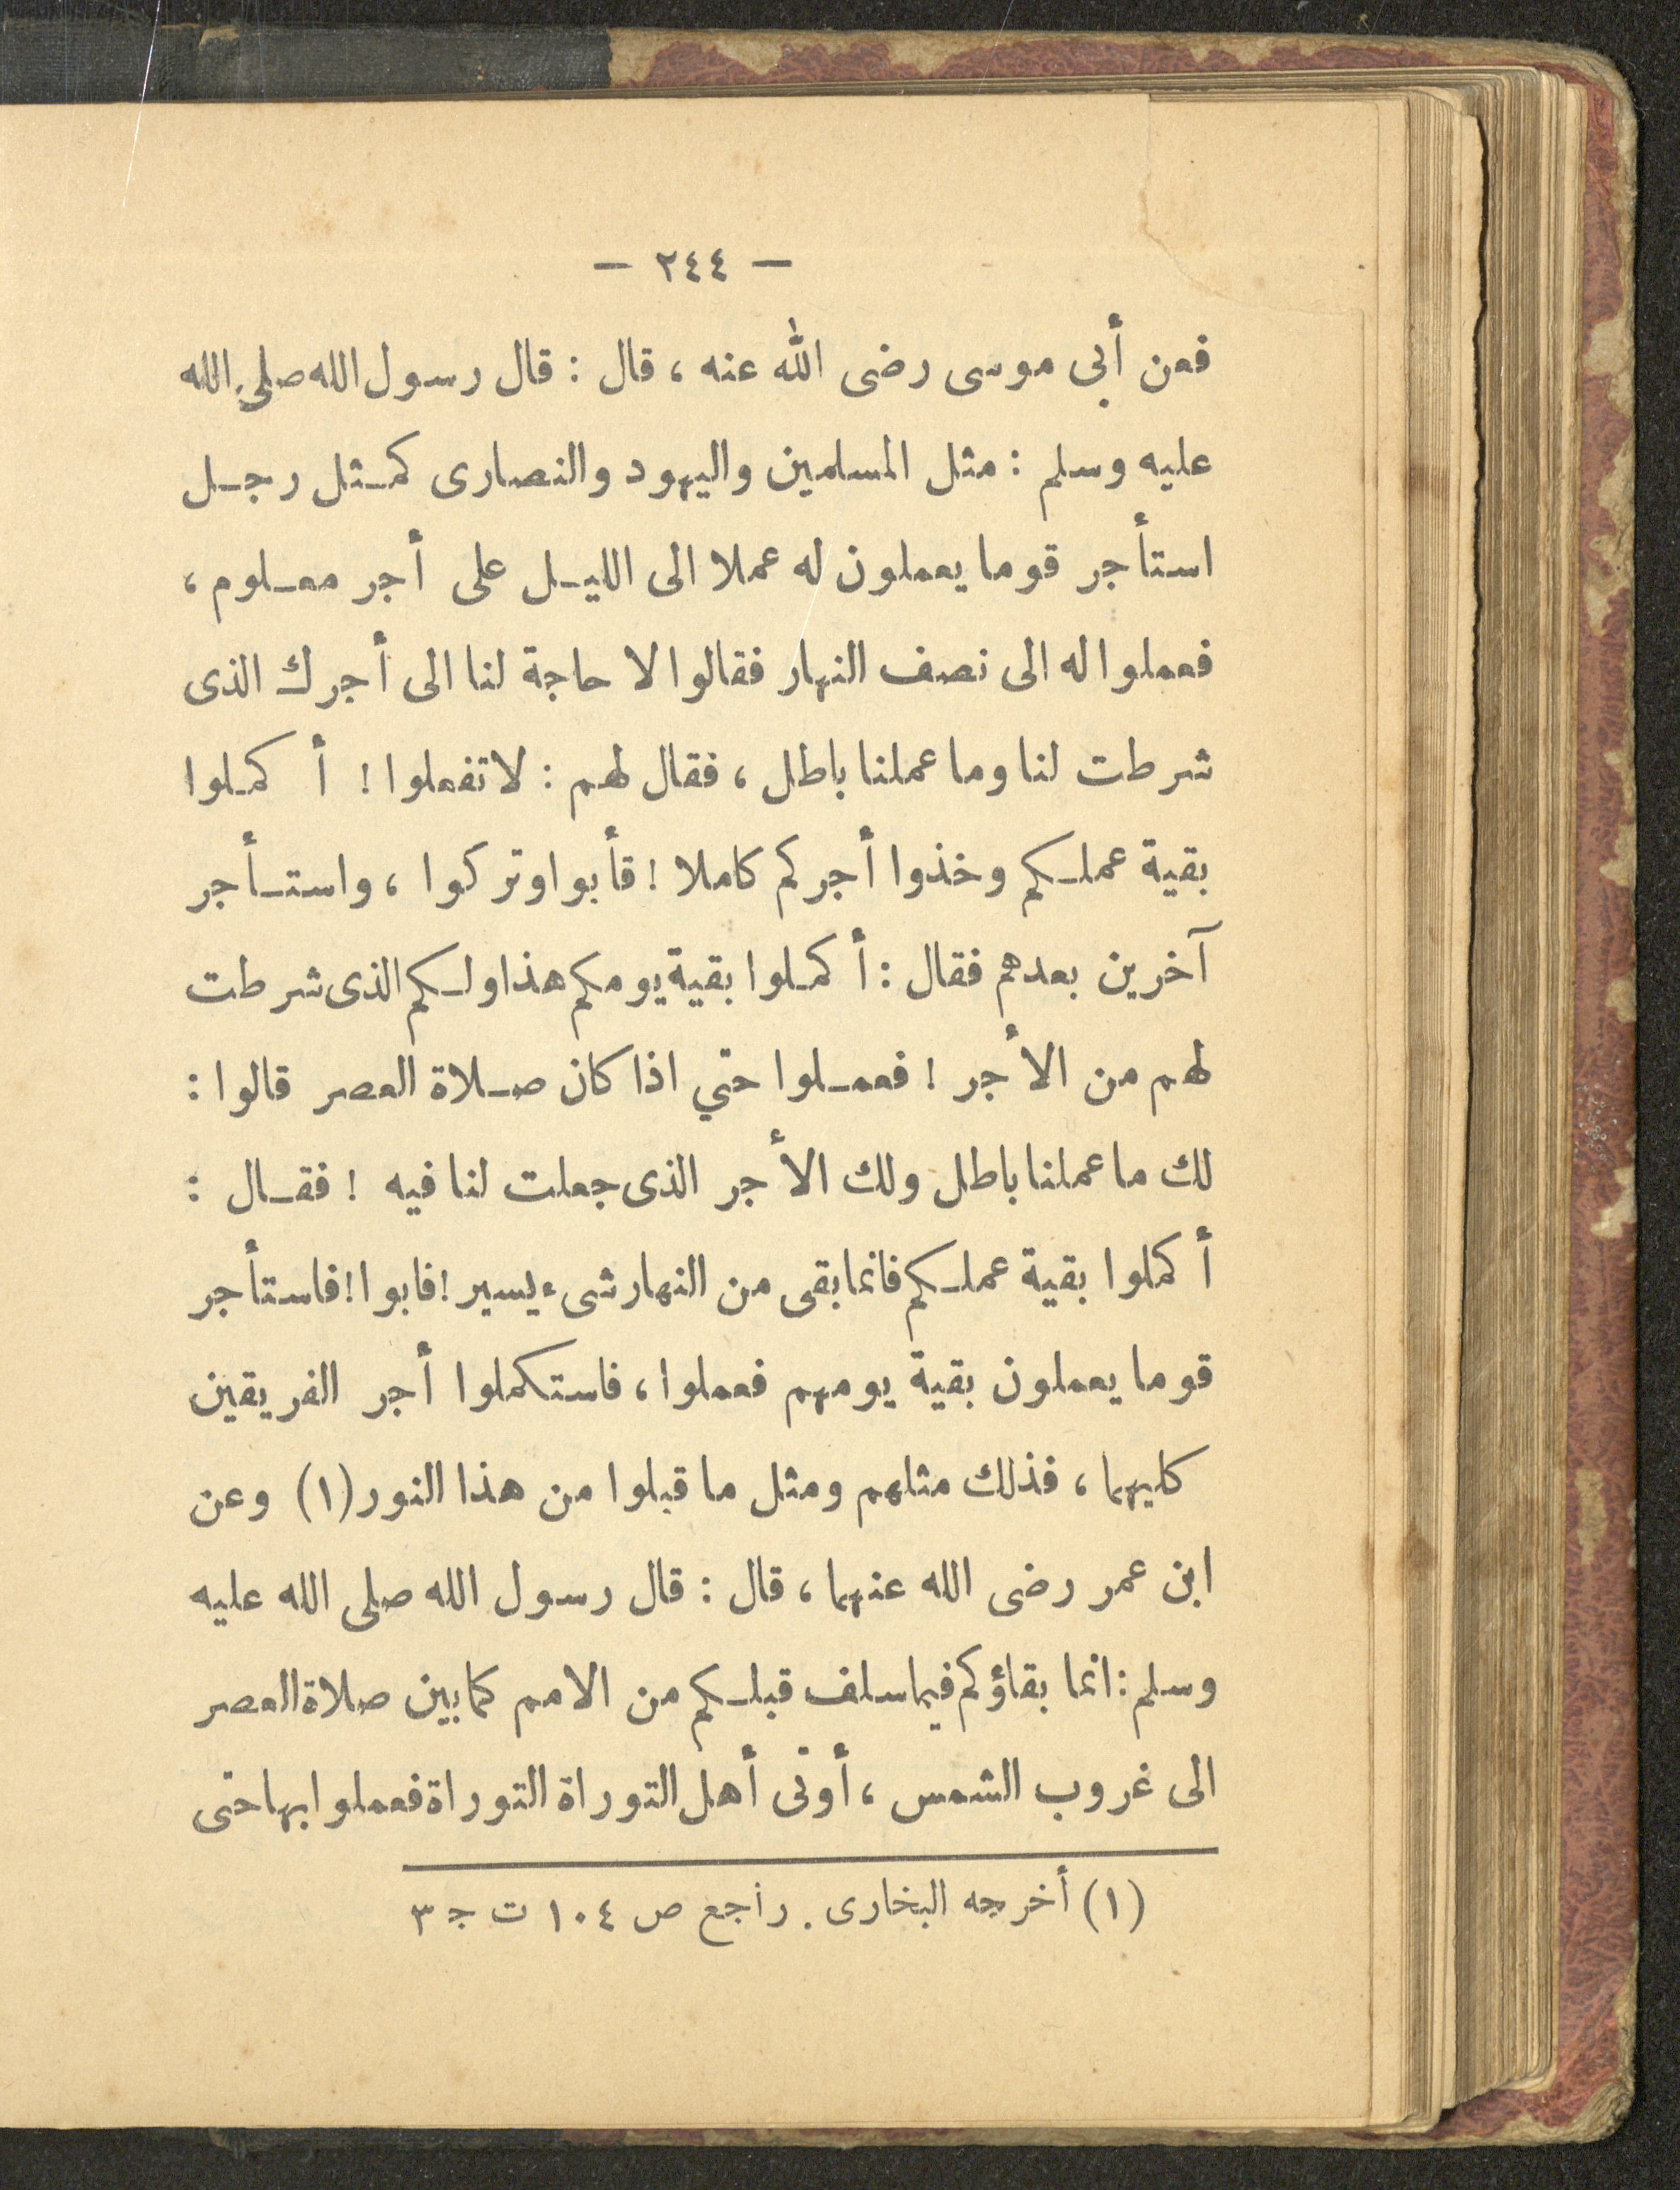 — ٢٤٤ —
فعن أبى موسى رضى الله عنه ، قال : قال رسول الله صلى الله
عليه وسلم : مثل المسلمين واليهود والنصارى كمثل رجل
استأجر قوما يعملون له عملا الى الليل على أجر معلوم ،
فعملوا له الى نصف النهار فقالوا لا حاجة لنا الى أجرك الذى
شرطت لنا وما عملنا باطل ، فقال لهم : لا تفعلوا ! أ كملوا
بقية عملكم وخذوا أجركم كاملا ! قأبوا وتركوا ، واستأجر
آخرين بعدهم فقال : أكملوا بقية يومكم هذا ولكم الذى شرطت
لهم من الأجر ! فعملوا حتي اذا كان صلاة العصر قالوا :
لك ما عملنا باطل ولك الأجر الذى جعلت لنا فيه ! فقال :
أكملوا بقية عملكم فانما بقى من النهار شىء يسير ! فابوا ! فاستأجر
قوما يعملون بقية يومهم فعملوا ، فاستكملوا أجر الفريقين
كليهما ، فذلك مثلهم ومثل ما قبلوا من هذا النور (١) وعن
ابن عمر رضى الله عنهما ، قال : قال رسول الله صلى الله عليه
وسلم : انما بقاؤكم فيما سلف قبلكم من الامم كما بين صلاة العصر
الى غروب الشمس ، أوتى أهل التوراة التوراة فعملوا بها حتى
(١) أخرجه البخارى . راجع ص ١٠٤ ت ج ٣